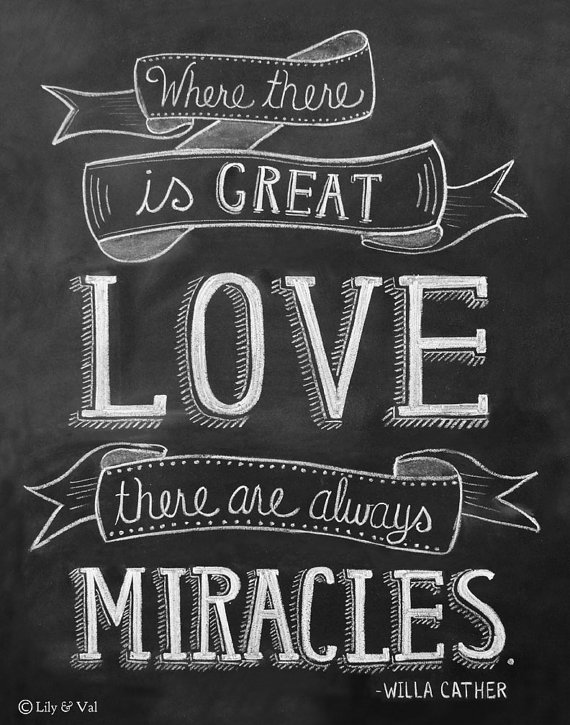 Where there
is GREAT
LOVE
there are always
MIRACLES.
-WILLA CATHER
© Lily & Val